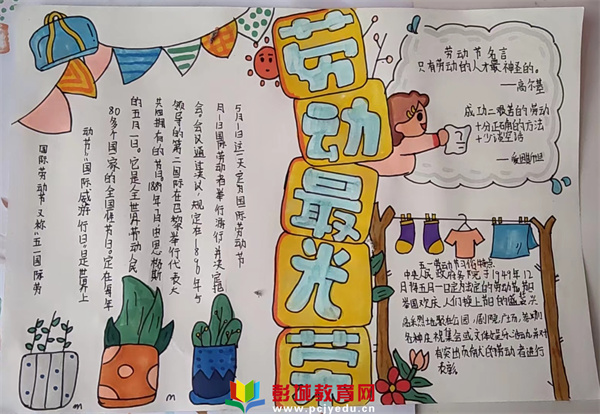 劳动最光荣
国际劳动节又称"五一国际劳
动节""国际威游行日"是世界上
80多个国家的全国性节日定在每年
的五月一日。它是全世界劳动人民
共同拥有的节日1889年7月由恩格斯
领导的第二国际在巴黎举行代表大
会。会议通过决议,规定在1890年5
月1日国际劳动者举行游行并决定把
5月1日这一天定为国际劳动节
劳动节名言
只有劳动的人才最神圣的。
——高尔基
成功=艰苦的劳动
十分正确的方法
十少说空话
——爱因斯坦
五一劳动节习俗特点
中央人民政府务院于1949年12
月将五月一日定为法定的劳动节节日
举国欢庆,人们换上节日的盛装兴
高采烈地聚在公园、剧院、广场,参加
各种庆祝集会或文体娱乐活动并对
有突出贡献的劳动者进行
表彰
彭城教育网
www.pcjyedu.cn